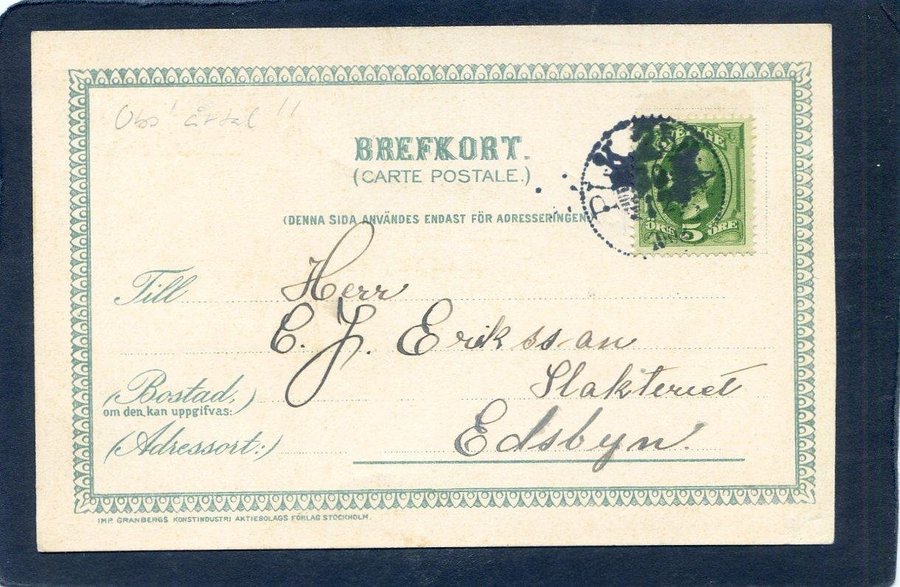 Obs! årtal!!
BREFKORT.
(CARTE POSTALE.)
(DENNA SIDA ANVÄNDES ENDAST FÖR ADRESSERINGEN
SVERIGE
ÖRE 5 ÖRE
PLK
Till Herr
C. J. Eriksson
Slakteriet
(Bostad,)
om den kan uppgifvas:
(Adressort:) Edsbyn.
IMP. GRANBERGS KONSTINDUSTRI AKTIEBOLAGS FÖRLAG STOCKHOLM.